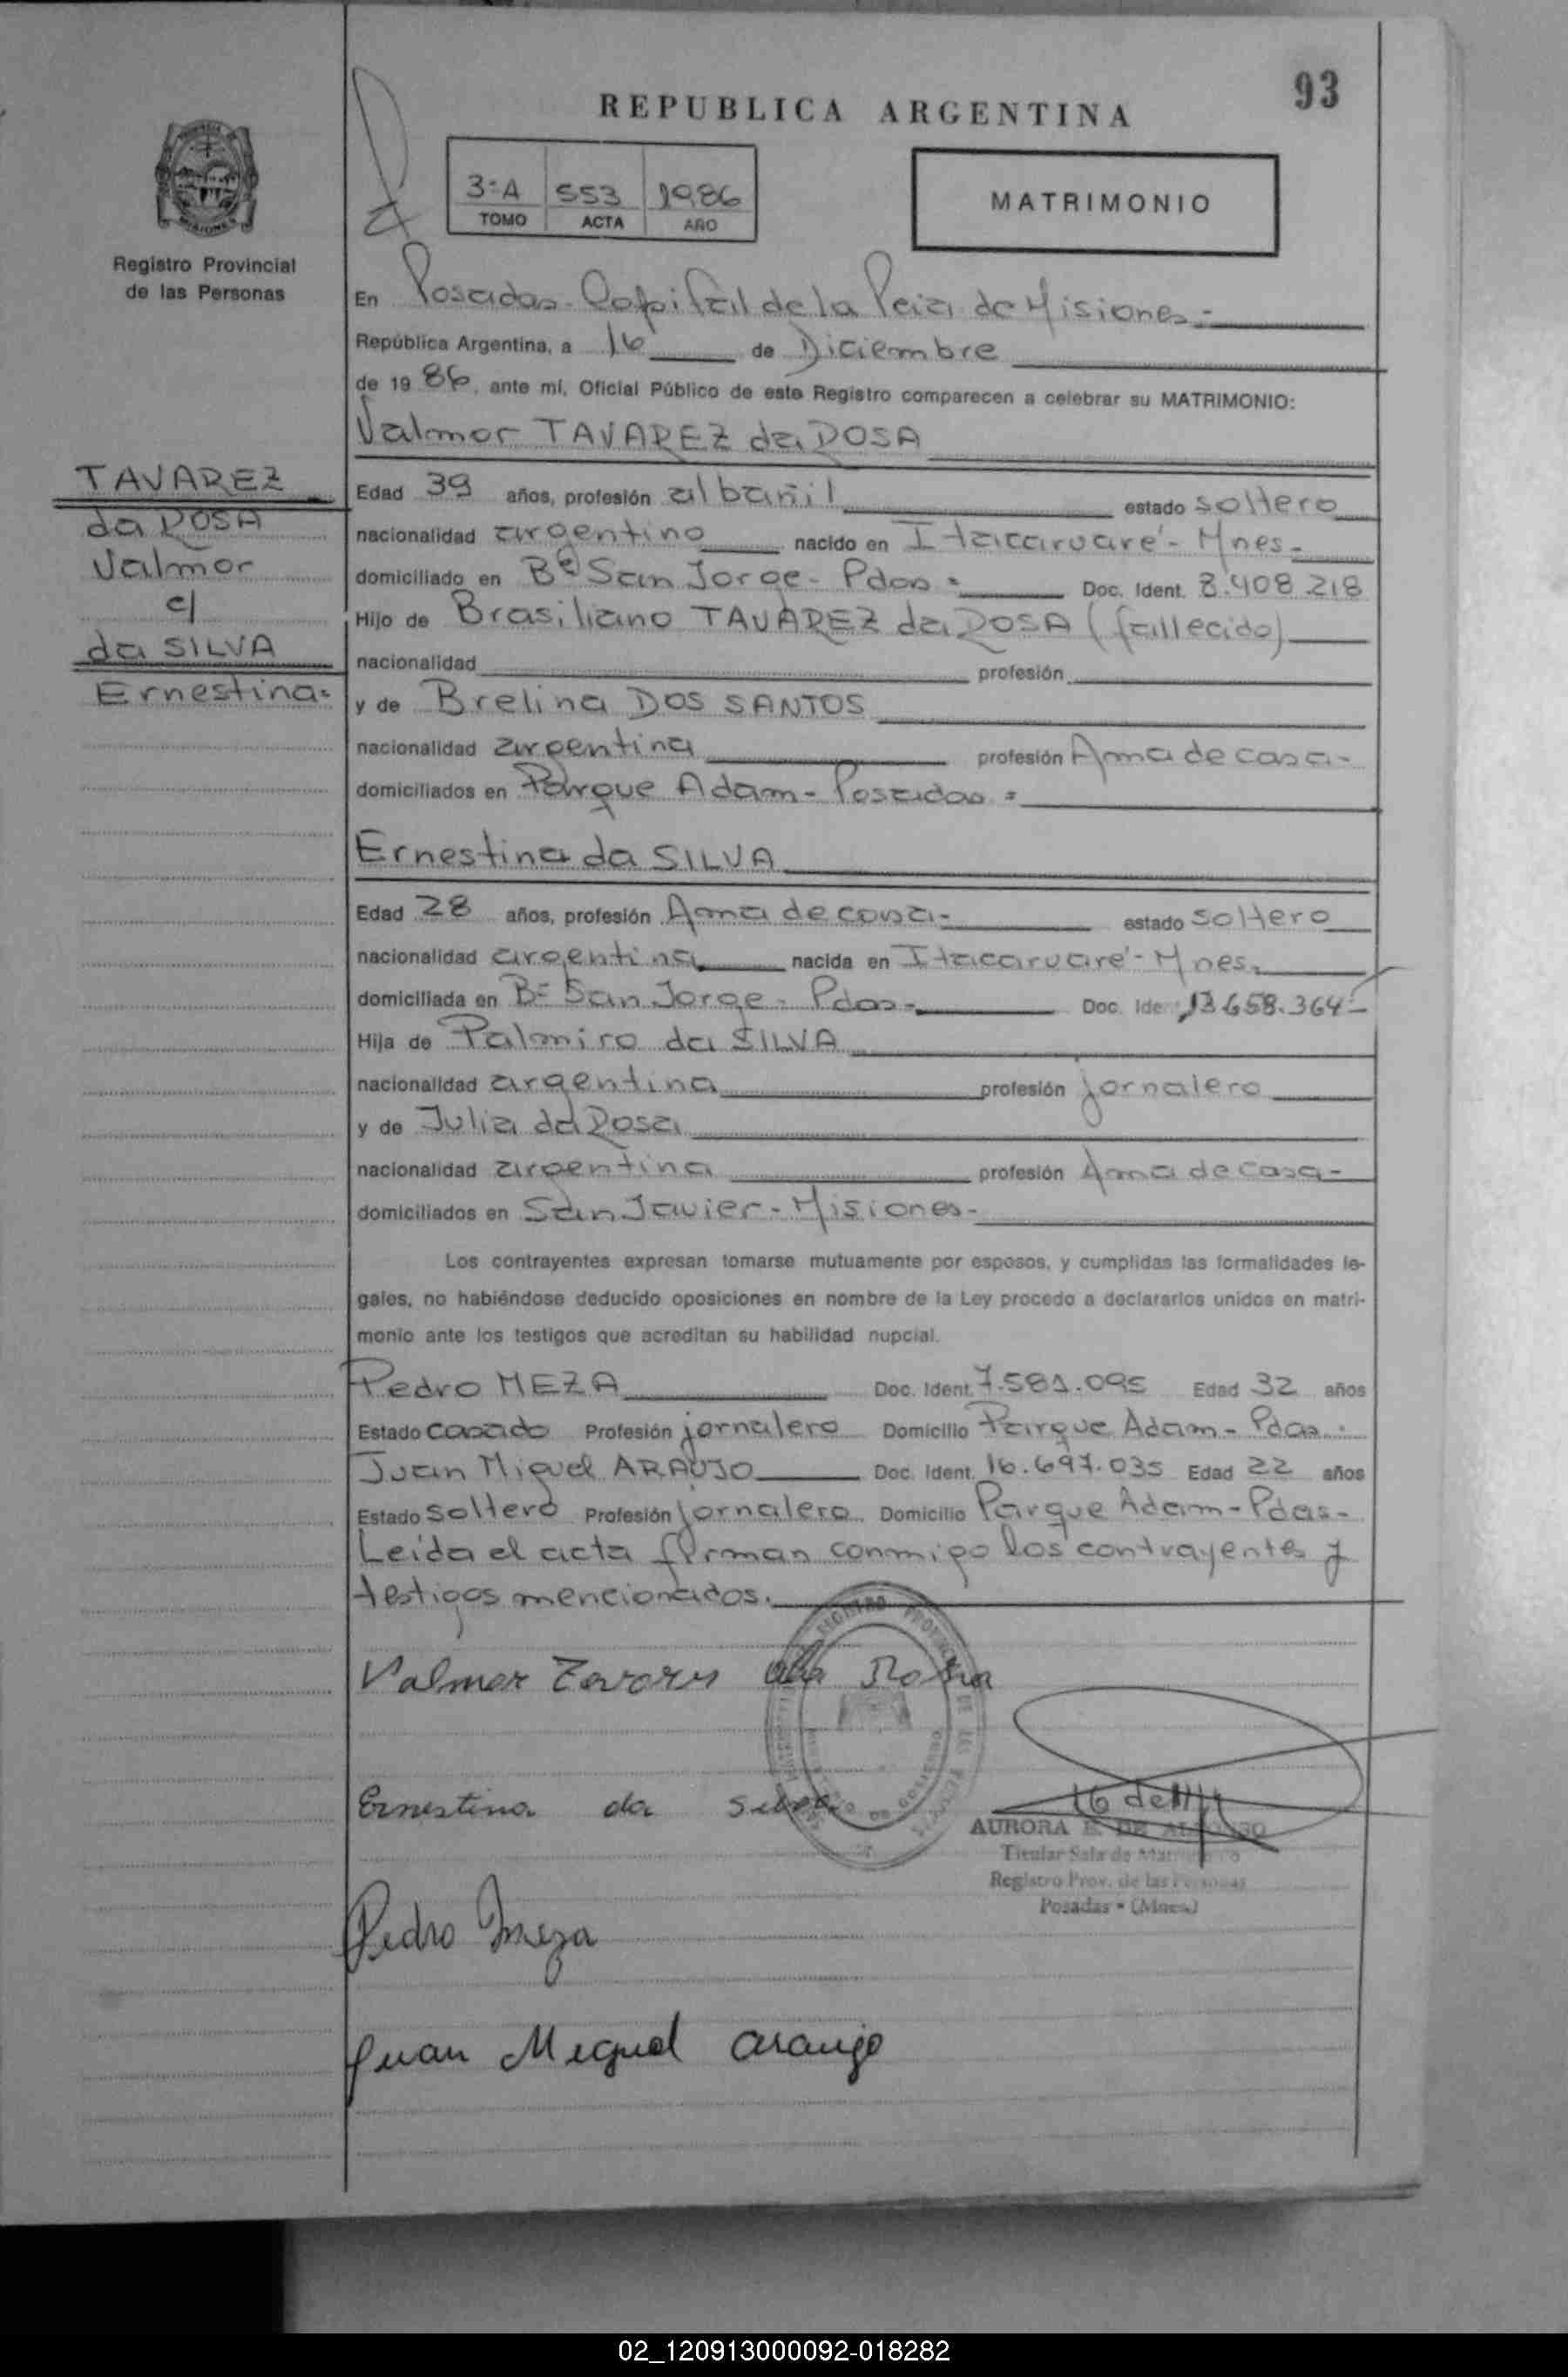 93
REPUBLICA ARGENTINA
3ºA 553 1986
TOMO ACTA AÑO
MATRIMONIO
Registro Provincial
de las Personas
En Posadas - Capital de la Pcia de Misiones -
República Argentina, a 16 de Diciembre
de 1986, ante mí, Oficial Público de este Registro comparecen a celebrar su MATRIMONIO:
Valmor TAVAREZ da ROSA
TAVAREZ
da ROSA
Valmor
c/
da SILVA
Ernestina=
Edad 39 años, profesión albañil estado soltero
nacionalidad argentino nacido en Itacaruaré - Mnes -
domiciliado en Bº San Jorge - Pdas = Doc. Ident. 8.408.218
Hijo de Brasiliano TAVAREZ da ROSA (fallecido)
nacionalidad profesión
y de Brelina DOS SANTOS
nacionalidad argentina profesión Ama de casa -
domiciliados en Parque Adam - Posadas =
Ernestina da SILVA
Edad 28 años, profesión Ama de casa - estado soltero
nacionalidad argentina nacida en Itacaruaré - Mnes.
domiciliada en Bº San Jorge - Pdas - Doc. Iden 13.658.364 -
Hija de Palmiro da SILVA
nacionalidad argentina profesión jornalero
y de Julia da Rosa
nacionalidad argentina profesión Ama de casa -
domiciliados en San Javier - Misiones -
Los contrayentes expresan tomarse mutuamente por esposos, y cumplidas las formalidades le-
gales, no habiéndose deducido oposiciones en nombre de la Ley procedo a declararlos unidos en matri-
monio ante los testigos que acreditan su habilidad nupcial.
Pedro MEZA Doc. Ident. 7.581.095 Edad 32 años
Estado casado Profesión jornalero Domicilio Parque Adam - Pdas.
Juan Miguel ARAUJO Doc. Ident. 16.697.035 Edad 22 años
Estado soltero Profesión jornalero Domicilio Parque Adam - Pdas -
Leida el acta firman conmigo los contrayentes y
testigos mencionados.
Valmor Tavares da Rosa
Ernestina da Silva
AURORA E. DE
Titular Sala de
Registro Prov. de las Personas
Posadas - (Mnes.)
Pedro Meza
Juan Miguel Araujo
02_120913000092-018282